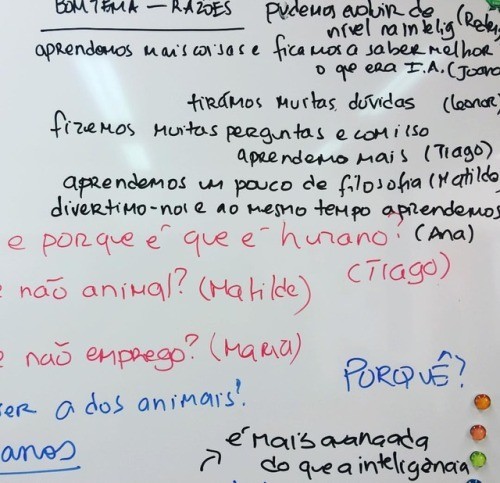 BOM TEMA — RAZÕES
pudemos evoluir de
nível na intelig (Rodri
aprendemos mais coisas e ficamos a saber melhor
o que era I.A. (Joana
tirámos muitas dúvidas (Leonor)
fizemos muitas perguntas e com isso
aprendemo mais (Tiago)
aprendemos um pouco de filosofia (Matilde
divertimo-nos e ao mesmo tempo aprendemos
(Ana)
e porque é que é humano? (Tiago)
e não animal? (Matilde)
e não emprego? (Maria)
PORQUÊ?
ser a dos animais!
anos
é mais avançada
do que a inteligência